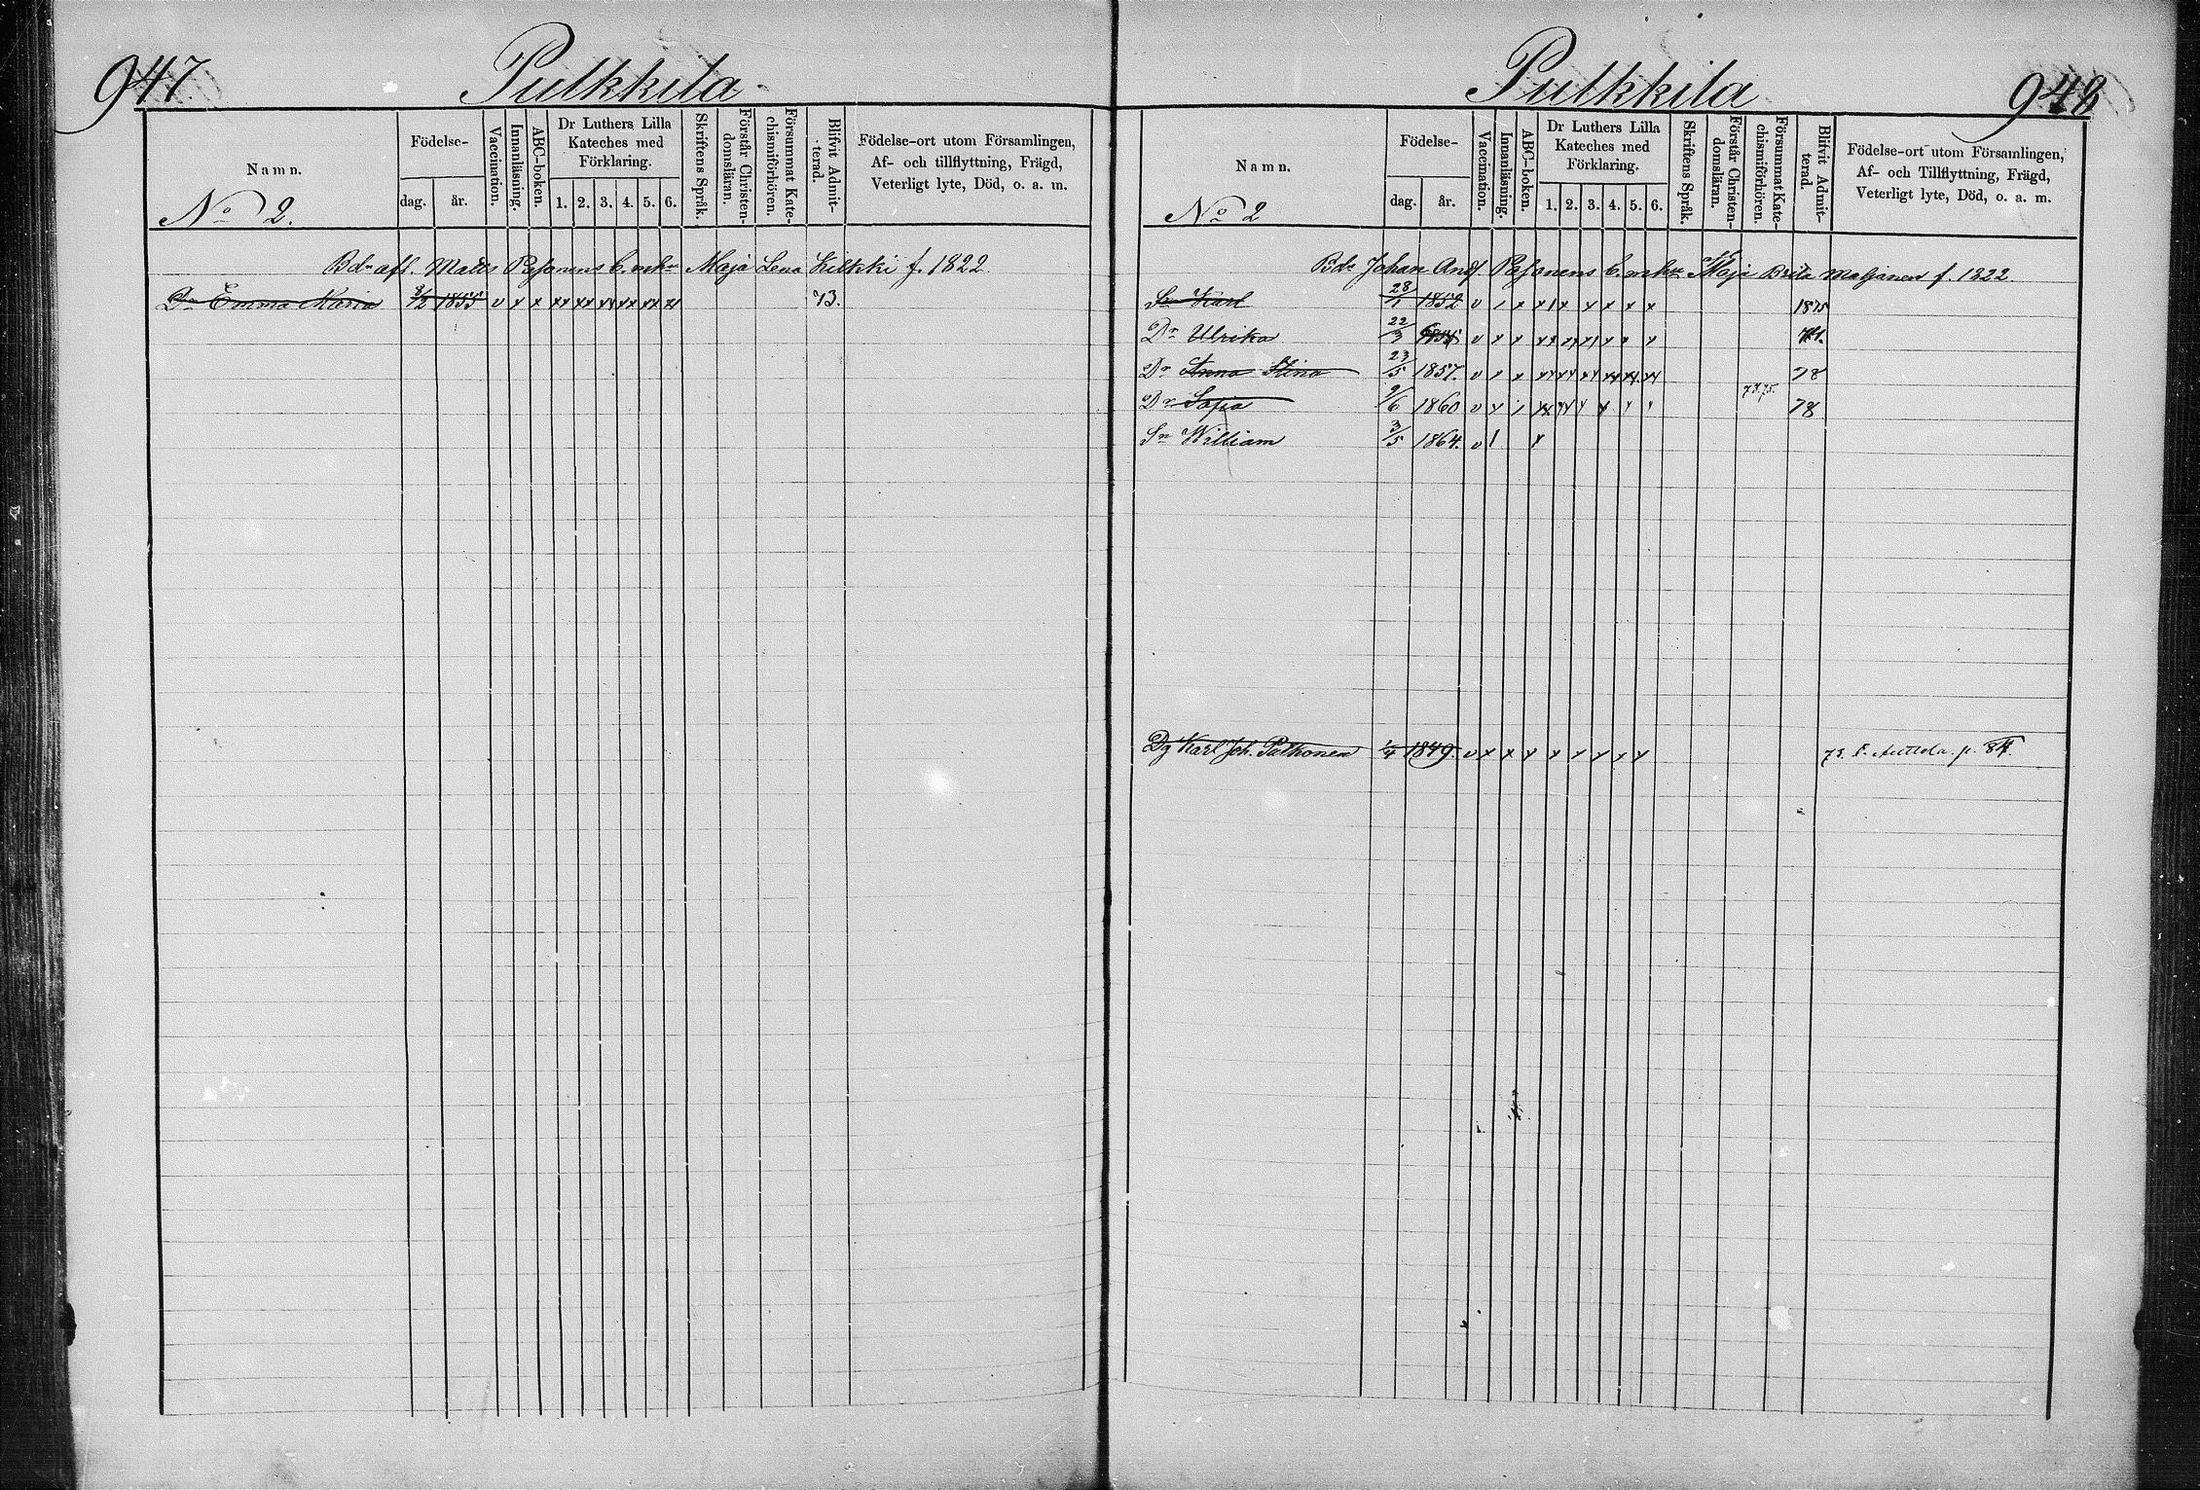 947 Pulkkila
Namn.
No 2.
Födelse-
dag. år.
Vaccination.
Innanläsning.
ABC-boken.
Dr Luthers Lilla
Kateches med
Förklaring.
1. 2. 3. 4. 5. 6.
Skriftens Språk.
Förstår Christen-
domsläran.
Försummat Kate-
chismiförhören.
Blifvit Admit-
terad.
Födelse-ort utom Församlingen,
Af- och tillflyttning, Frägd,
Veterligt lyte, Död, o. a. m.
Bdn afl. Matts Pasonens b. enka Maja Lena Kilkki f. 1822
Dr Emma Maria 3/2 1855 v x x xx xx xx xx xx x 73.
Pulkkila 948
Namn.
No 2
Födelse-
dag. år.
Vaccination.
Innanläsning.
ABC-boken.
Dr Luthers Lilla
Kateches med
Förklaring.
1. 2. 3. 4. 5. 6.
Skriftens Språk.
Förstår Christen-
domsläran.
Försummat Kate-
chismiförhören.
Blifvit Admit-
terad.
Födelse-ort utom Församlingen,
Af- och Tillflyttning, Frägd,
Veterligt lyte, Död, o. a. m.
Bdn Johan And. Pasonens b. m. h. Maja Brita Matjanen f. 1822
Sn Karl 28/1 1852 v 1875
Dr Ulrika 22/3 v
Dr Anna Stina 23/5 1857. v 78
Dr Sofia 9/6 1860 v 78
Sn William 3/5 1864. v x
Dg Karl Joh. Pulkonen 1/4 1849. v x x x x x x x x 73. p. 84.